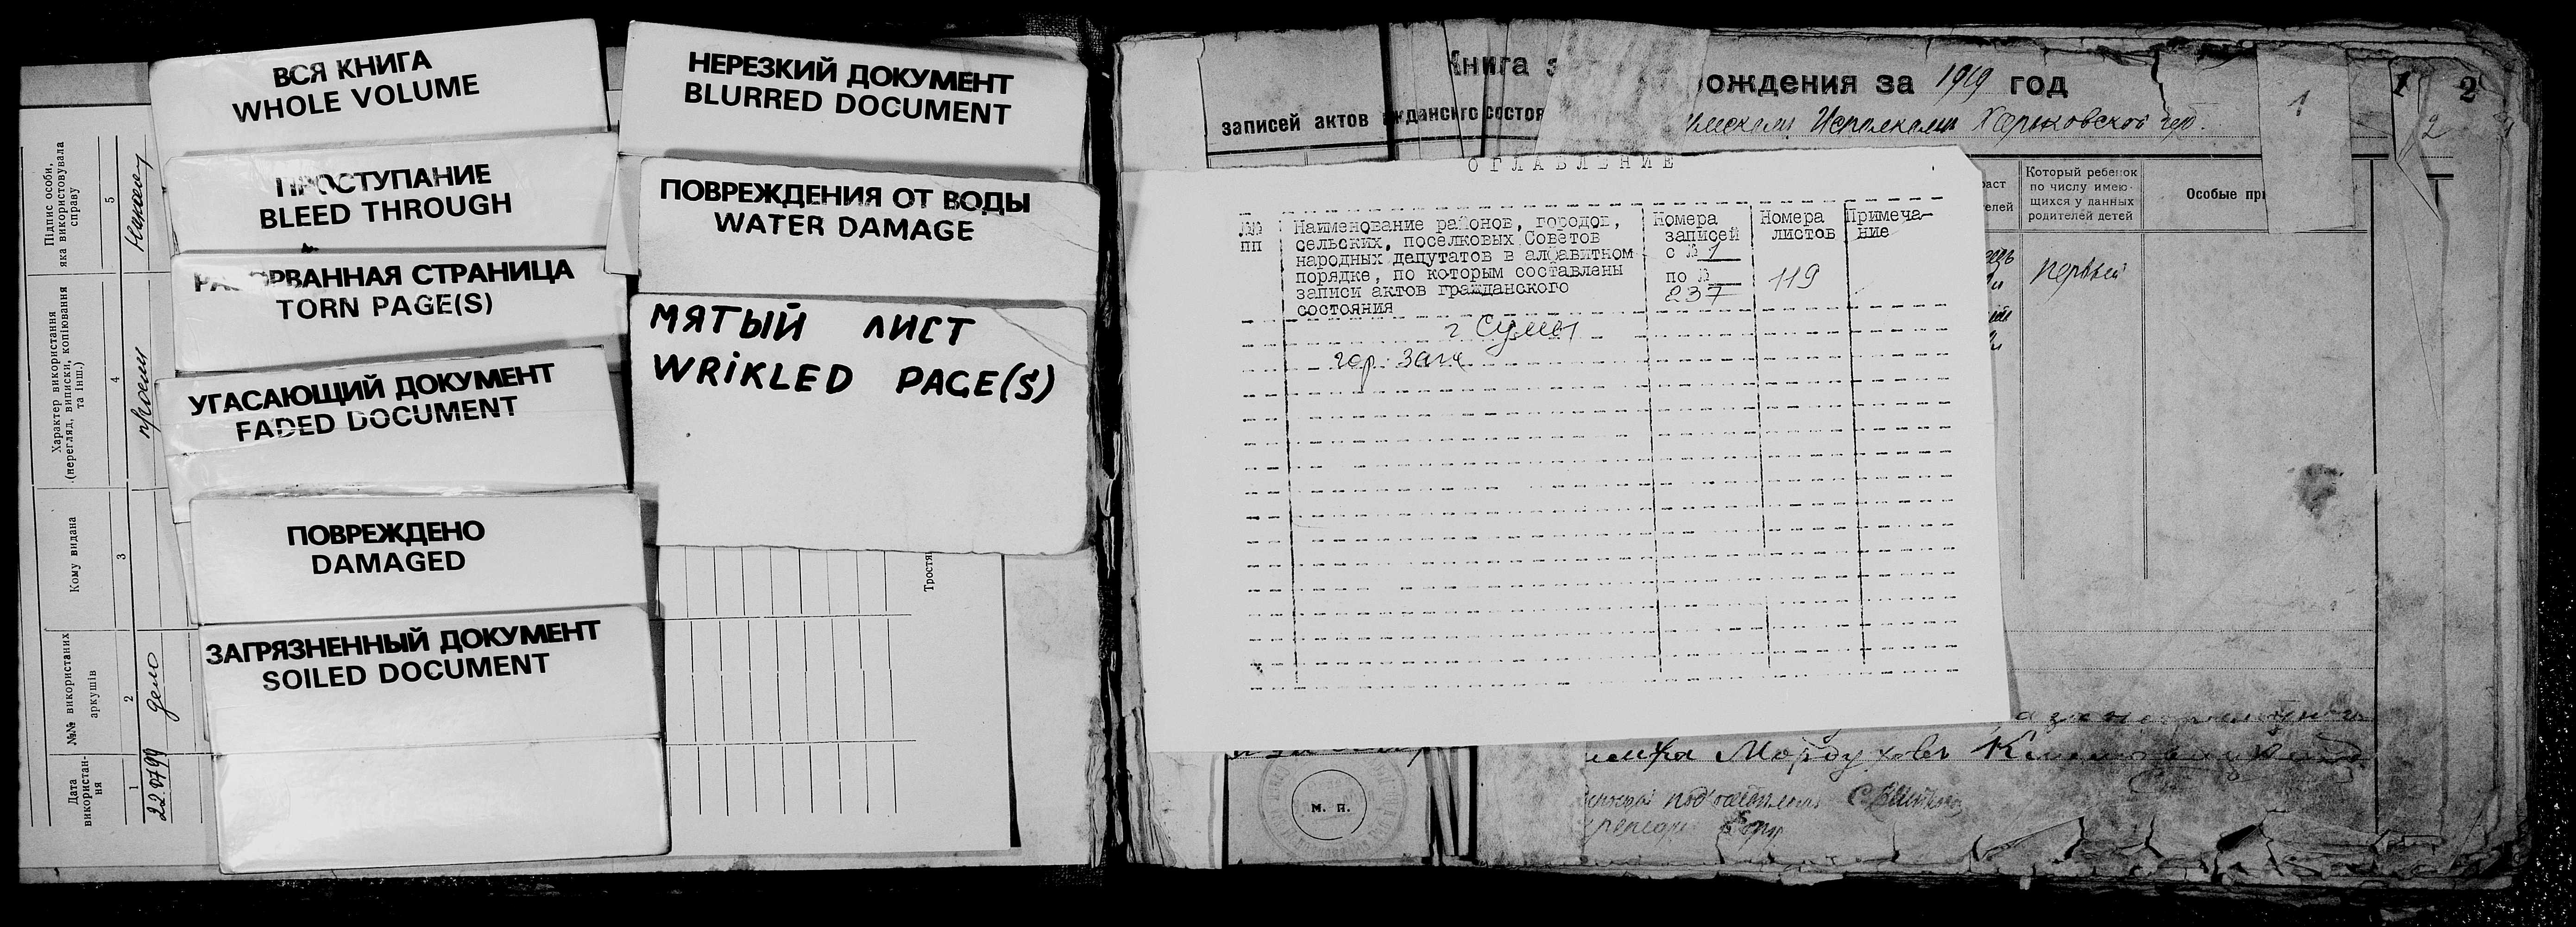 Підпис особи,
яка використовувала
справу
5
Характер використання
(перегляд, виписки, копіювання
та інш.)
4
Кому видана
3
№№ використаних
аркушів
2
дело
Дата
використан-
ня
1
22.07.99
ВСЯ КНИГА
WHOLE VOLUME
ПРОСТУПАНИЕ
BLEED THROUGH
РАЗОРВАННАЯ СТРАНИЦА
TORN PAGE(S)
УГАСАЮЩИЙ ДОКУМЕНТ
FADED DOCUMENT
ПОВРЕЖДЕНО
DAMAGED
ЗАГРЯЗНЕННЫЙ ДОКУМЕНТ
SOILED DOCUMENT
НЕРЕЗКИЙ ДОКУМЕНТ
BLURRED DOCUMENT
ПОВРЕЖДЕНИЯ ОТ ВОДЫ
WATER DAMAGE
МЯТЫЙ ЛИСТ
WRiKLED PAGE(S)
Тростя
Книга з
рождения за 1919 год
записей актов гражданского состоя
Исполкома Харьковской губ.
1
1
2
2
Который ребенок
по числу имею-
щихся у данных
родителей детей
Особые при
первый
ОГЛАВЛЕНИЕ
№№
пп
Наименование районов, городов,
сельских, поселковых Советов
народных депутатов в алфавитном
порядке, по которым составлены
записи актов гражданского
состояния
Номера
записей
с № 1
по №
237
Номера
листов
119
Примеча-
ние
г Сумы
гор. загс
М. П.
Мордухов